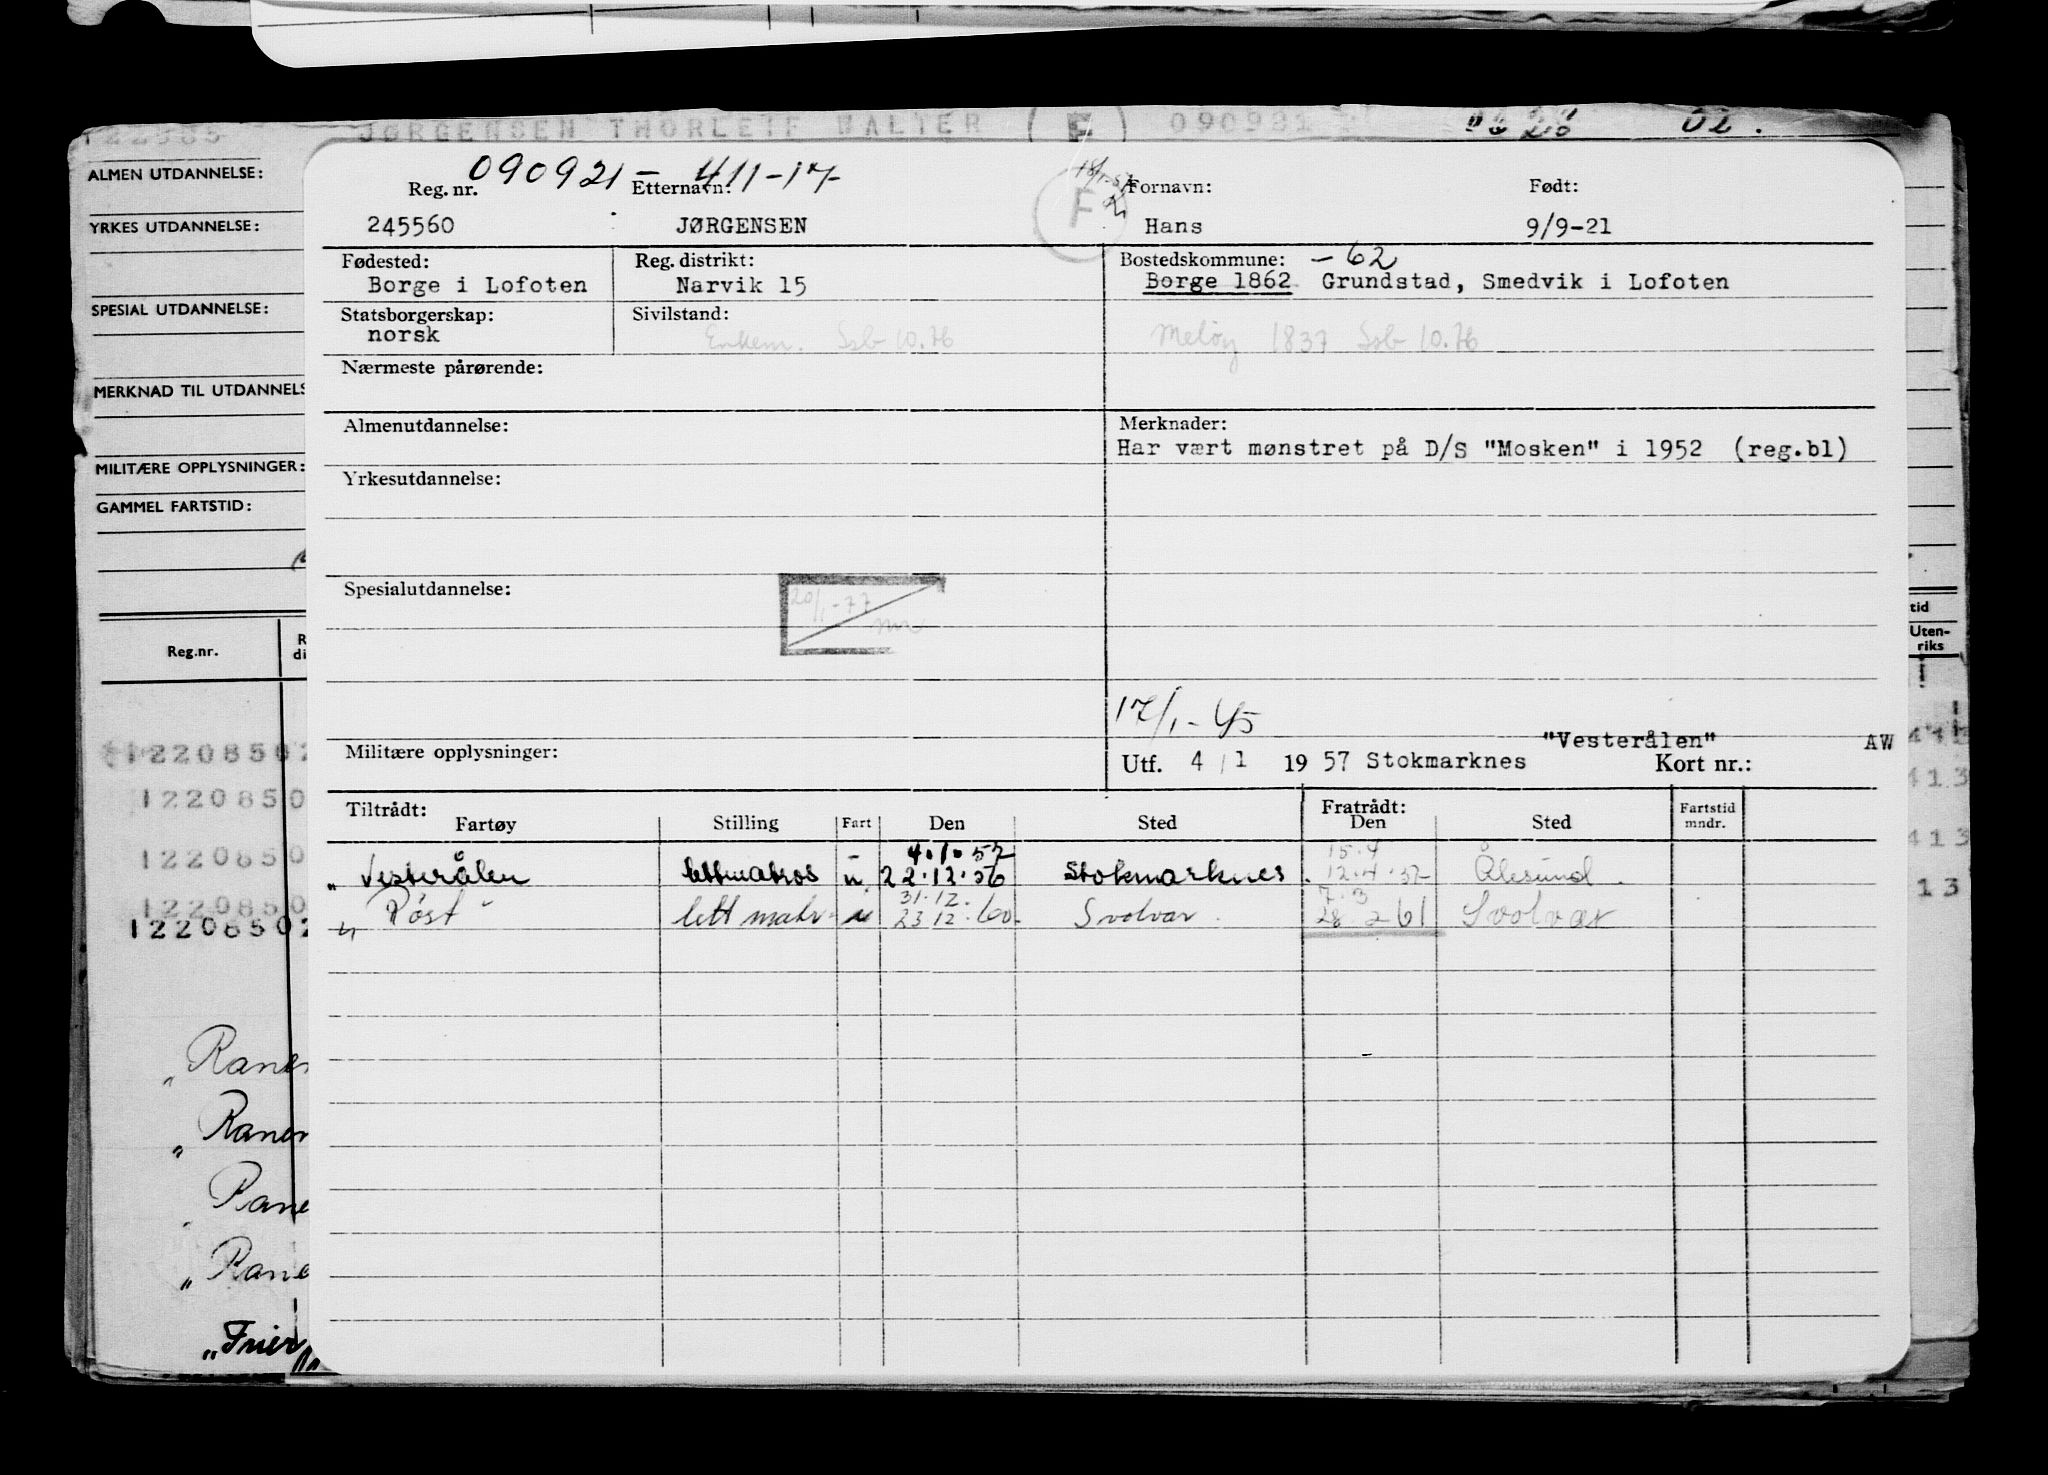 JØRGENSEN THORLEIF WALTER (F) 090931
ALMEN UTDANNELSE:
YRKES UTDANNELSE:
SPESIAL UTDANNELSE:
MERKNAD TIL UTDANNELS
MILITÆRE OPPLYSNINGER:
GAMMEL FARTSTID:
Reg.nr.
12208502
1220850
1220850
1220850
12208502
„Raner
„Raner
Rane
„Rane
„Frier
tid
Uten-
riks
413
413
13
090921 - 411-17-
Reg. nr. Etternavn: F Fornavn: Født:
245560 JØRGENSEN Hans 9/9-21
Fødested: Reg. distrikt: Bostedskommune: -62
Borge i Lofoten Narvik 15 Borge 1862 Grundstad, Smedvik i Lofoten
Statsborgerskap: Sivilstand:
norsk Enkem. Ssb 10.76 Meløy 1837 Ssb 10.76
Nærmeste pårørende:
Almenutdannelse: Merknader:
Har vært mønstret på D/S "Mosken" i 1952 (reg.bl)
Yrkesutdannelse:
Spesialutdannelse: 20/1-77
17/1-45
Militære opplysninger: "Vesterålen" AW
Utf. 4 / 1 19 57 Stokmarknes Kort nr.:
Tiltrådt: Fratrådt: Fartstid
Fartøy Stilling Fart Den Sted Den Sted mndr.
4.1.57 15.4
„Vesterålen lettmatros u 22.12.56 Stokmarknes 12.4.57 Ålesund
31.12. 7.3
„Røst" lettmatr. u 23.12.60. Svolvær 28.2 61 Svolvær